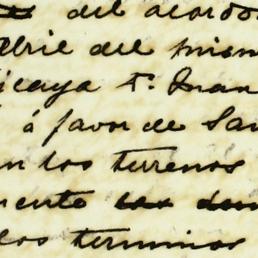 del acordo
abril del mism
icaya t. Juan
á favor de San
n los terrenos
mento
los terminos